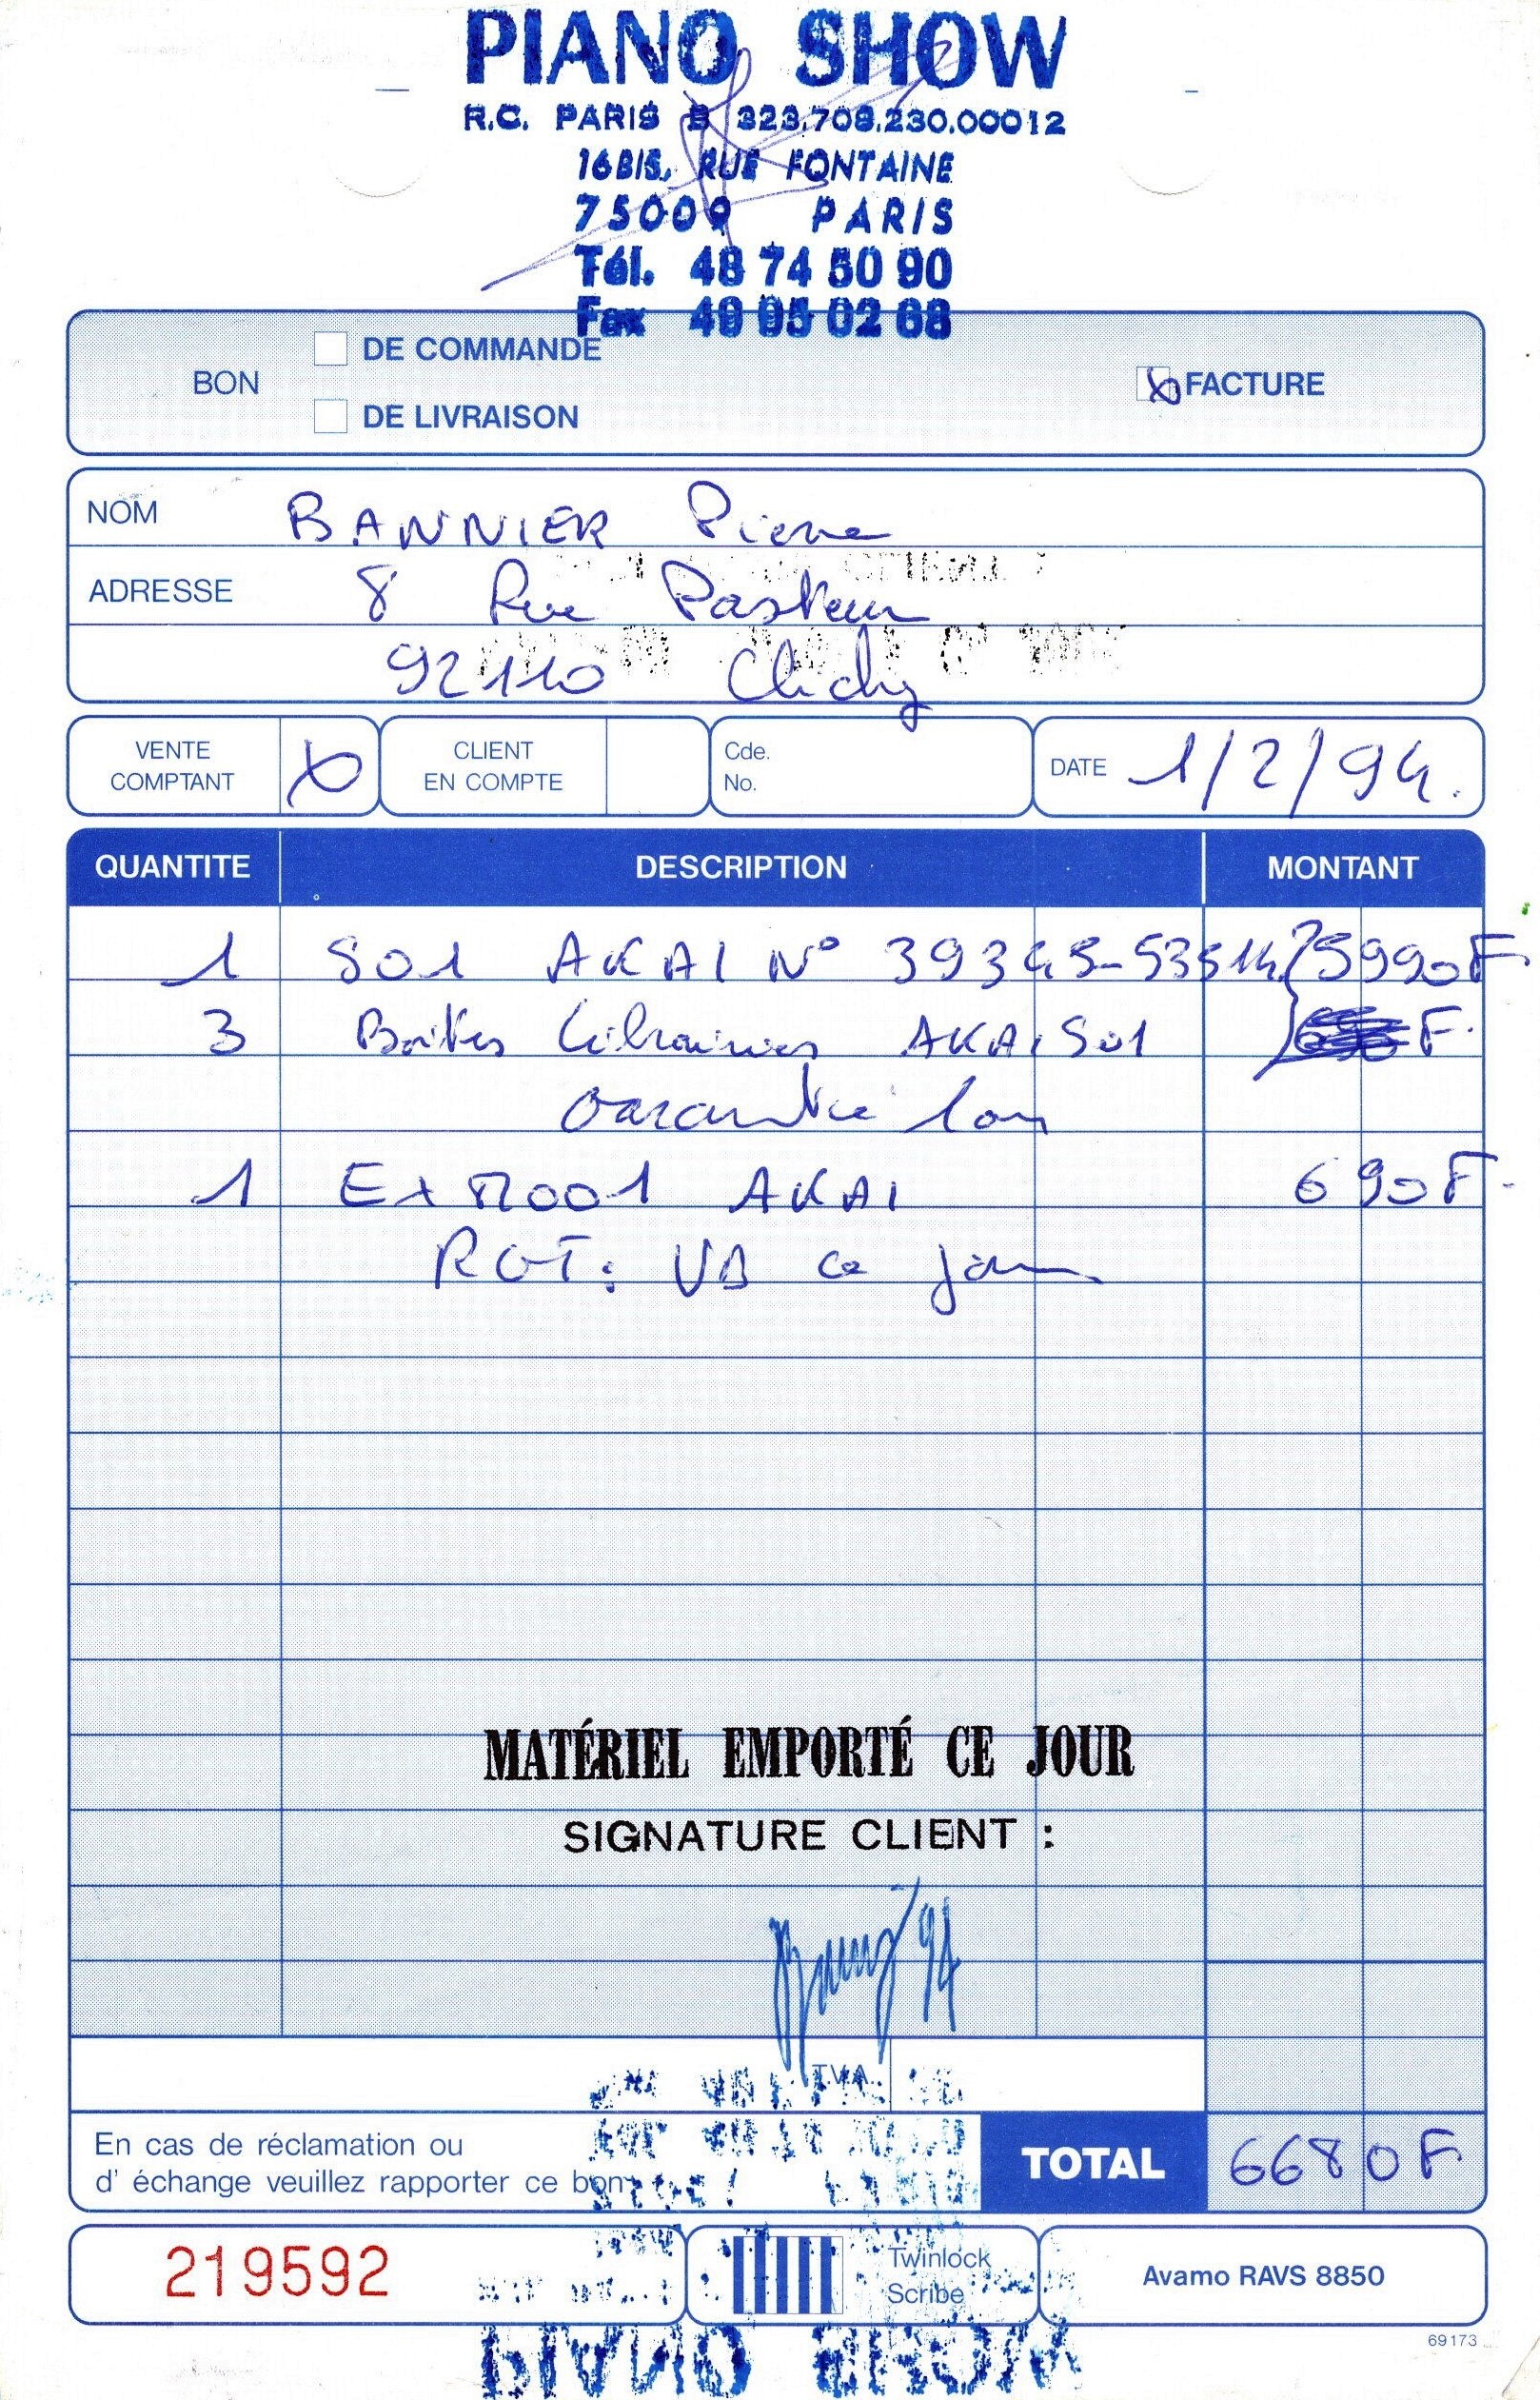 PIANO SHOW
R.C. PARIS B 323.708.230.00012
16 BIS, RUE FONTAINE
75009 PARIS
Tél. 48 74 50 90
Fax 49 95 02 68
BON
DE COMMANDE
DE LIVRAISON
FACTURE
NOM BANNIER Pierre
ADRESSE 8 Rue Pasteur
92110 Clichy
VENTE COMPTANT
CLIENT EN COMPTE
Cde. No.
DATE 1/2/94.
QUANTITE DESCRIPTION MONTANT
1 S01 AKAI N° 39345-53514 5990F
3 Boites librairies AKAI S01 F.
Garantie 1 an
1 EXM001 AKAI 690F.
RGT: VB ce jour
MATÉRIEL EMPORTÉ CE JOUR
SIGNATURE CLIENT :
94
T.V.A.
En cas de réclamation ou
d' échange veuillez rapporter ce bon
TOTAL 6680F
219592
Twinlock
Scribe
Avamo RAVS 8850
69173